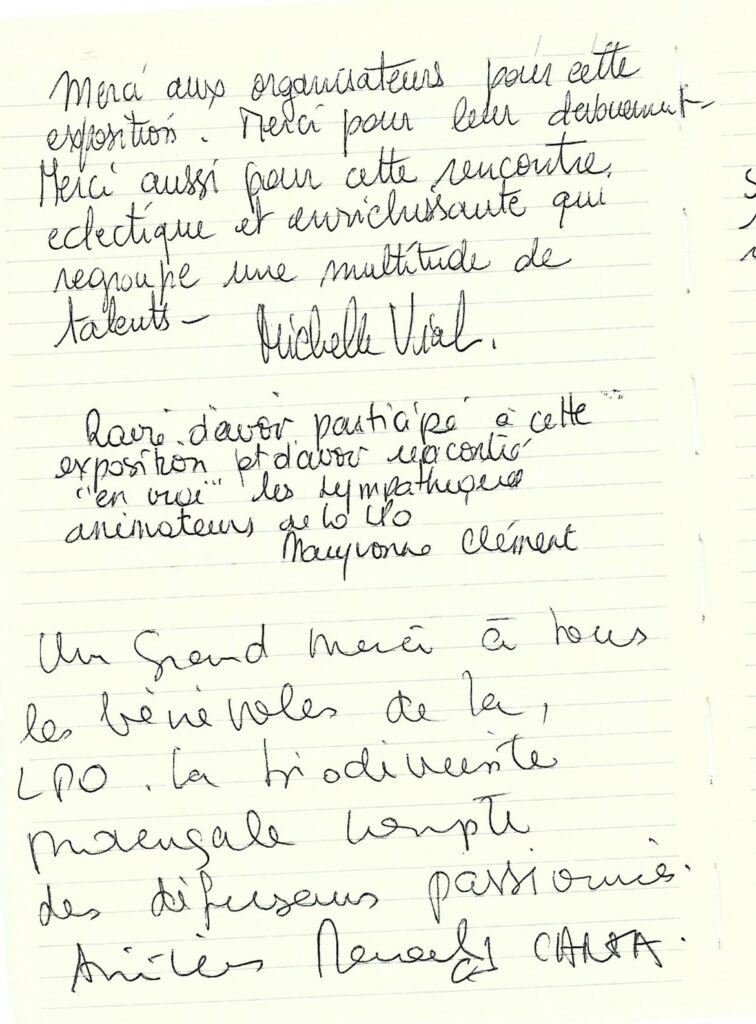 Merci aux organisateurs pour cette
exposition. Merci pour leur dévouement -
Merci aussi pour cette rencontre,
eclectique et enrichissante qui
regroupe une multitude de
talents -
Michelle Vial.
Ravie d'avoir participé à cette
exposition et d'avoir rencontré
"en vrai" les sympathiques
animateurs de la LPO
Maryvonne Clément
Un Grand merci à tous
les bénévoles de la
LPO. La biodiversité
provençale compte
des défenseurs passionnés.